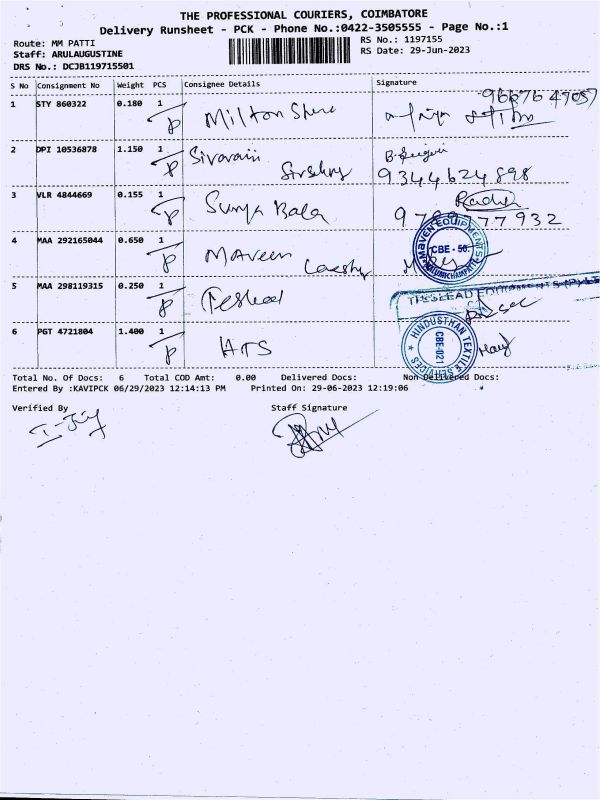 THE PROFESSIONAL COURIERS, COIMBATORE
Delivery Runsheet - PCK - Phone No.:0422-3505555 - Page No.:1
Route: MM PATTI
RS No.: 1197155
Staff: ARULAUGUSTINE
RS Date: 29-Jun-2023
DRS No.: DCJB119715501
S No Consignment No Weight PCS Consignee Details Signature
1 STY 860322 0.180 1 Milton
2 DPI 10536878 1.150 1 Sivaram
9344624898
3 VLR 4844669 0.155 1 Surya Bala Radha
4 MAA 292165044 0.650 1 Maveen
MAVEN EQUIPMENTS CBE - 50.
5 MAA 298119315 0.250 1
6 PGT 4721804 1.400 1 HTS
HINDUSTHAN TEXTILE SERVICES CBE-021
Total No. Of Docs: 6 Total COD Amt: 0.00 Delivered Docs: Non Delivered Docs:
Entered By :KAVIPCK 06/29/2023 12:14:13 PM Printed On: 29-06-2023 12:19:06
Verified By Staff Signature